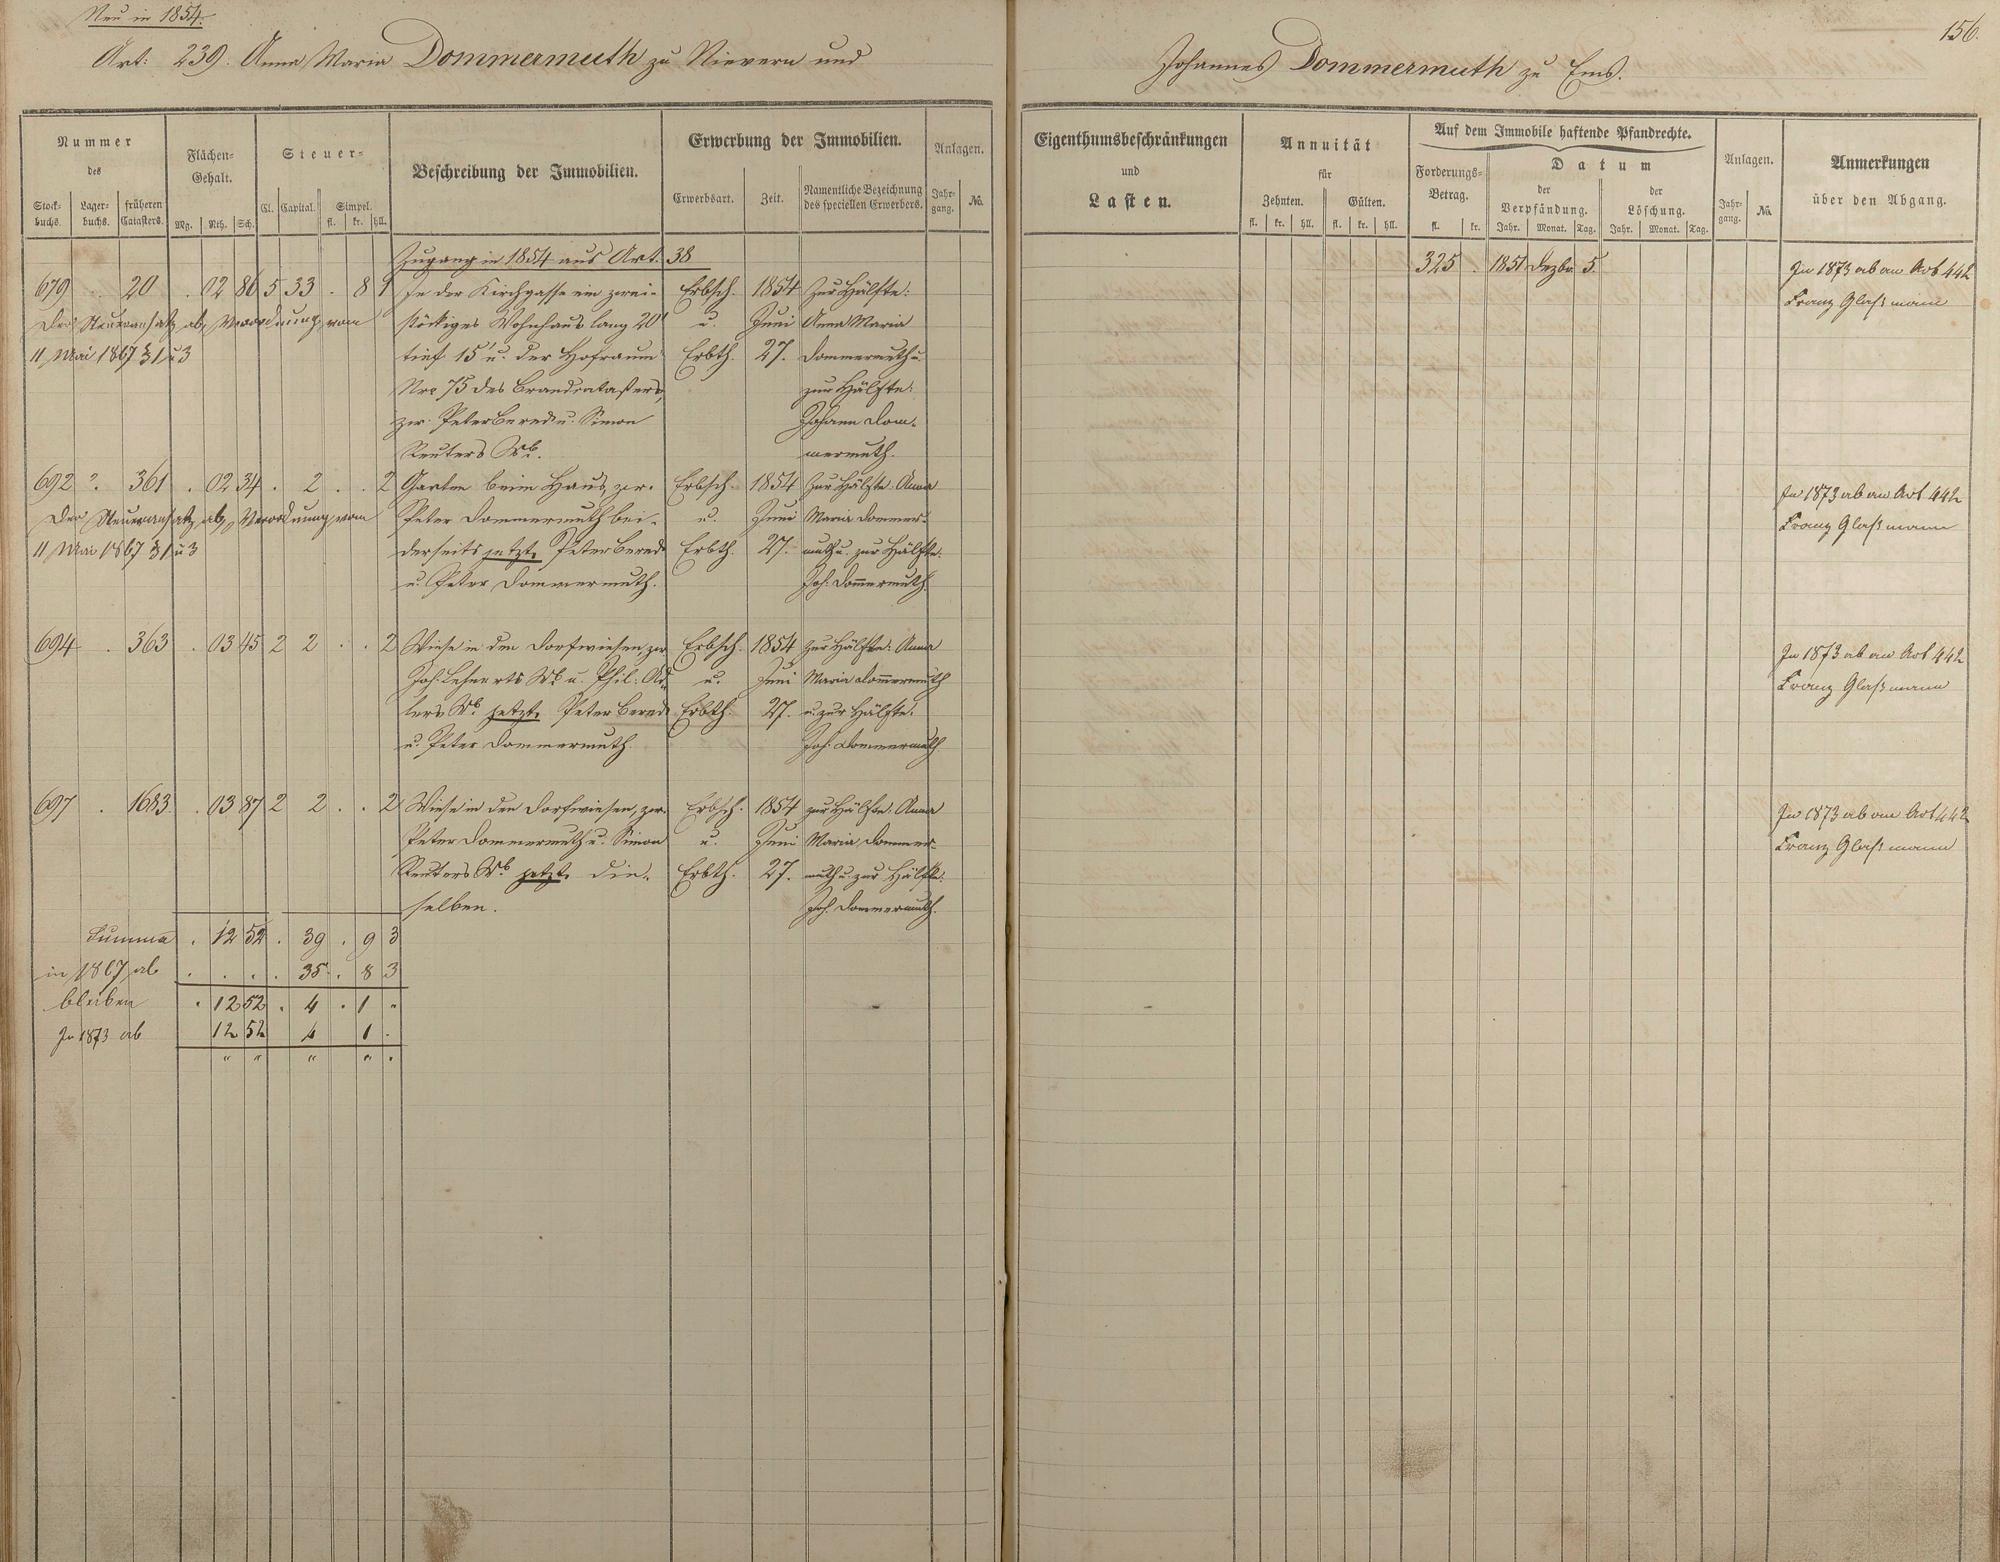 Neu in 1854.
156.
Art: 239. Anna Maria Dommermuth zu Nievern und
Johannes Dommermuth zu Ems.
Nummer
des
Stock-
buchs.
Lager-
buchs.
früheren
Catasters.
Flächen-
Gehalt.
Mg. Rth. Sch.
Steuer-
Cl. Capital. Simpel.
fl. kr. hll.
Beschreibung der Immobilien.
Erwerbung der Immobilien.
Erwerbsart. Zeit. Namentliche Bezeichnung
des speciellen Erwerbers.
Anlagen.
Jahr-
gang. No.
Eigenthumsbeschränkungen
und
Lasten.
Annuität
für
Zehnten. Gülten.
fl. kr. hll. fl. kr. hll.
Auf dem Immobile haftende Pfandrechte.
Forderungs-
Betrag.
fl. kr.
Datum
der
Verpfändung.
Jahr. Monat. Tag.
der
Löschung.
Jahr. Monat. Tag.
Anlagen.
Jahr-
gang. No.
Anmerkungen
über den Abgang.
Zugang in 1854 aus Art. 38
679 . 20 . 02 86 5 33 . 8 1 In der Kirchgasse ein zwei- Erbsch. 1854 Zur Hälfte:
Der Steueransatz ab, Verordnung vom stöckiges Wohnhaus lang 20' u. Juni Anna Maria
11 Mai 1867 § 1 u 3 tief 15' u. der Hofraum Erbth. 27. Dommermuth u.
Nro 75 des Brandcatasters, zur Hälfte:
zw. Peter Bered u. Simon Johann Dom-
Reuters Wb. mermuth.
325 . 1851 Dezbr 5.
In 1873 ab an Art 442
Franz Glaßmann
692 . 361 . 02 34 . 2 . . 2 Garten beim Haus, zw. Erbsch. 1854 Zur Hälfte: Anna
Der Steueransatz ab, Verordnung vom Peter Dommermuth bei- u. Juni Maria Dommer-
11 Mai 1867 § 1 u 3 derseits jetzt, Peter Bered Erbth. 27. muth u. zur Hälfte:
u. Peter Dommermuth. Joh. Dommermuth.
In 1873 ab an Art 442
Franz Glaßmann
694 . 363 . 03 45 2 2 . . 2 Wiese in den Dorfwiesen, zw Erbsch. 1854 zur Hälfte: Anna
Joh. Lehnerts Wb u. Phil. Ad- u. Juni Maria Dommermuth
lers Wb. jetzt, Peter Bered Erbth. 27. u. zur Hälfte:
u. Peter Dommermuth. Joh. Dommermuth.
In 1873 ab an Art 442
Franz Glaßmann
697 . 1683 . 03 87 2 2 . . 2 Wiese in den Dorfwiesen, zw. Erbsch. 1854 zur Hälfte: Anna
Peter Dommermuth u. Simon u. Juni Maria Dommer-
Reuters Wb. jetzt, die- Erbth. 27. muth u. zur Hälfte:
selben. Joh. Dommermuth.
In 1873 ab an Art 442
Franz Glaßmann
Summa . 12 52 . 39 . 9 3
in 1867 ab . . . . 35 . 8 3
bleiben . 12 52 . 4 . 1 "
In 1873 ab 12 52 4 1 .
" " " " "